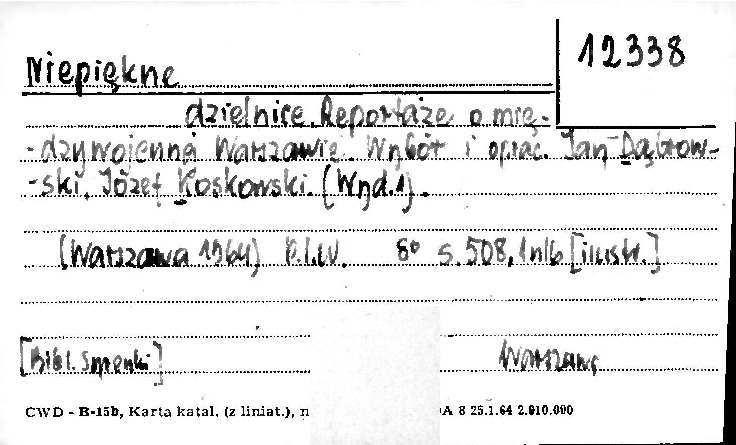 12338
Niepiękne
dzielnice. Reportaże o mię-
-dzywojennej Warszawie. Wybór i oprac. Jan Dąbrow-
-ski, Józef Koskowski. (Wyd. 1).
(Warszawa 1964) P.I.W. 8° s. 508, 1 nlb [ilustr.]
[Bibl. Syrenki] Warszawa
CWD - B-15b, Karta katal. (z liniat.), n A 8 25.1.64 2.010.000